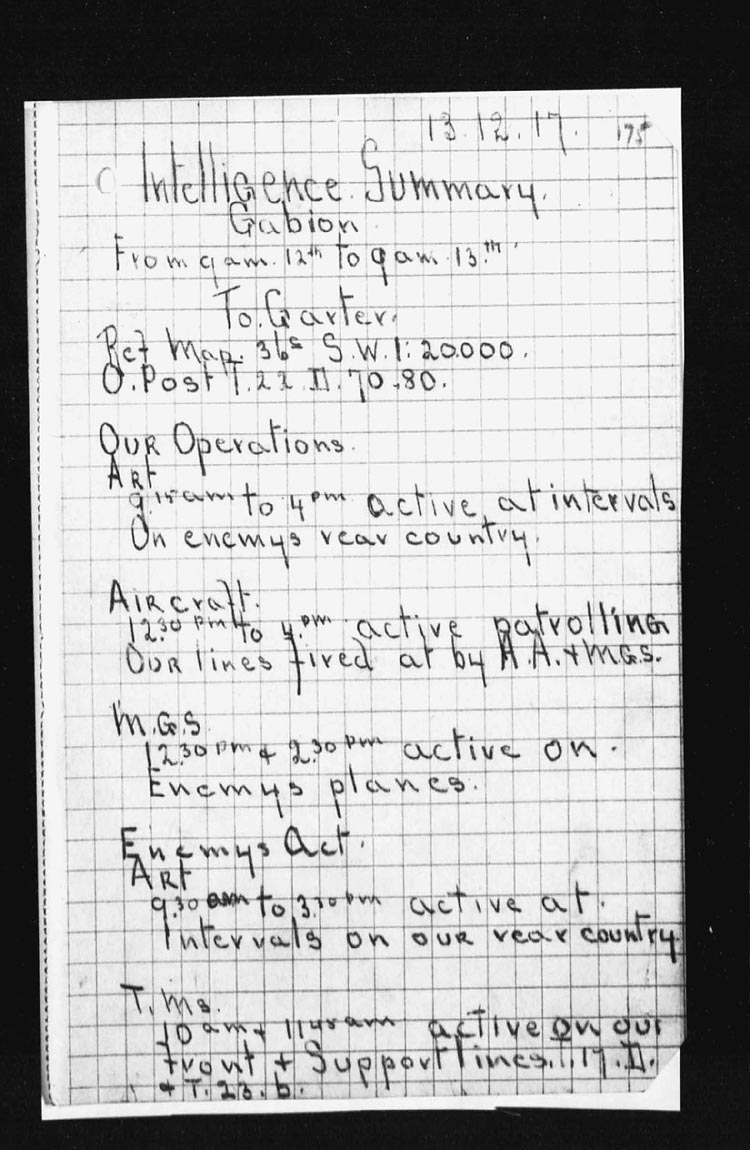 13.12.17. 175
Intelligence Summary.
Gabion
From 9 am. 12th To 9 am. 13.th
To. Garter.
Ref Map. 36s S.W. 1:20.000.
O. Post T.22 D. 70.80.
OUR Operations.
ART
9.15 am to 4 pm active at intervals
On enemys rear country.
AIRcraft.
12.30 pm to 4.pm active patrolling
OUR lines fired at by A.A. + M.G.s.
M.G.S.
12.30 pm + 2.30 pm active on.
Enemys planes.
Enemys Act.
ART
9.30 am to 3.30 pm active at.
Intervals on our rear country
T.Ms.
10 am + 11 45 am active on our
front + Support lines. T.17.D.
+ T.23.b.